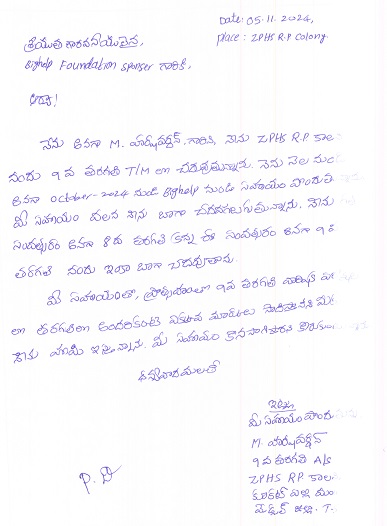 Date: 05-11-2024,
place: ZPHS R.P Colony.
శ్రీయుత గౌరవనీయులైన,
Bighelp Foundation sponser గారికి,
నేను అనగా M. హర్షవర్ధన్. గారికి, నాను ZPHS R.P. కాల
నందు 9వ తరగతి T/M లో చదువుతున్నాను. నేను నెల నుండి
అనగా october-2024 నుండి Bighelp నుండి సహాయం పొందుతు
మీ సహాయం వలన నాను బాగా చదవగలుగుతున్నాను. నాను
సంవత్సరం అనగా 8వ తరగతి కన్న ఈ సంవత్సరం అనగా 9వ
తరగతి నందు ఇంకా బాగా చదువుతాను.
మీ సహాయంతో, ప్రోత్సాహంతో 9వ తరగతి వార్షిక
లో తరగతిలో అందరికంటే ఎక్కువ మార్కులు
నాను హామీ ఇస్తున్నాను. మీ సహాయం కొనసాగించాలని
ధన్యవాదములతో
ఇట్లు
మీ సహాయం పొందు
M. హర్షవర్ధన్
9వ తరగతి A/s
ZPHS R.P. కాల
కూకట్ పల్లి మం
మేడ్చల్ జిల్లా. T.
P. D